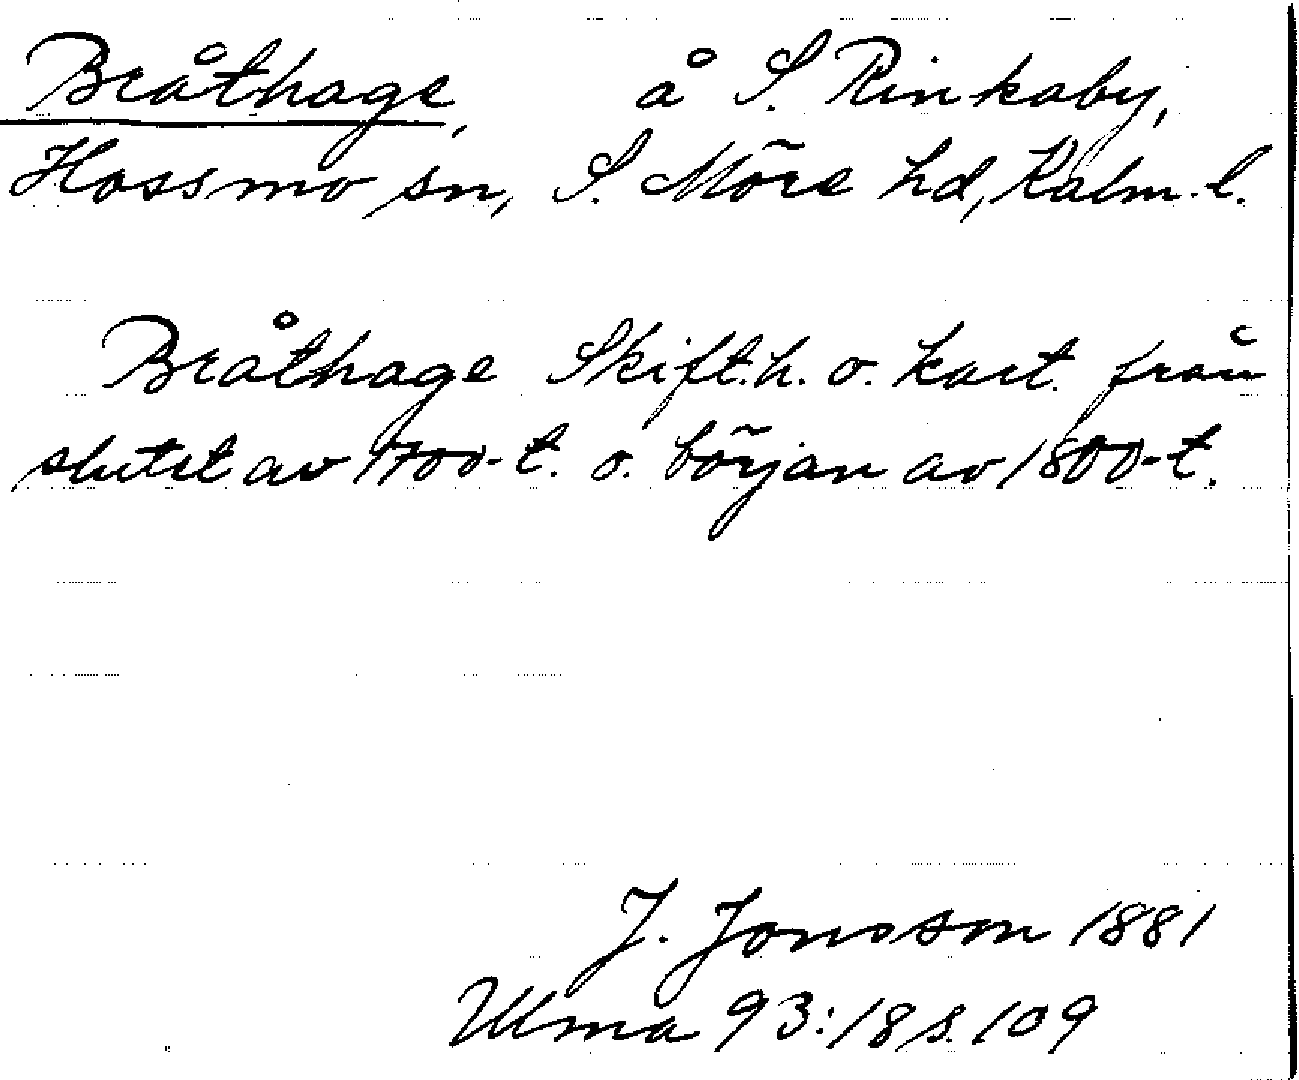 Bråthage, å S. Rinkaby,
Hossmo sn, S. Möre hd, Kalm. l.
Bråthage Skift.h. o. kart. från
slutet av 1700-t. o. början av 1800-t.
J. Jonsson 1881
Ulma 93:18 s. 109